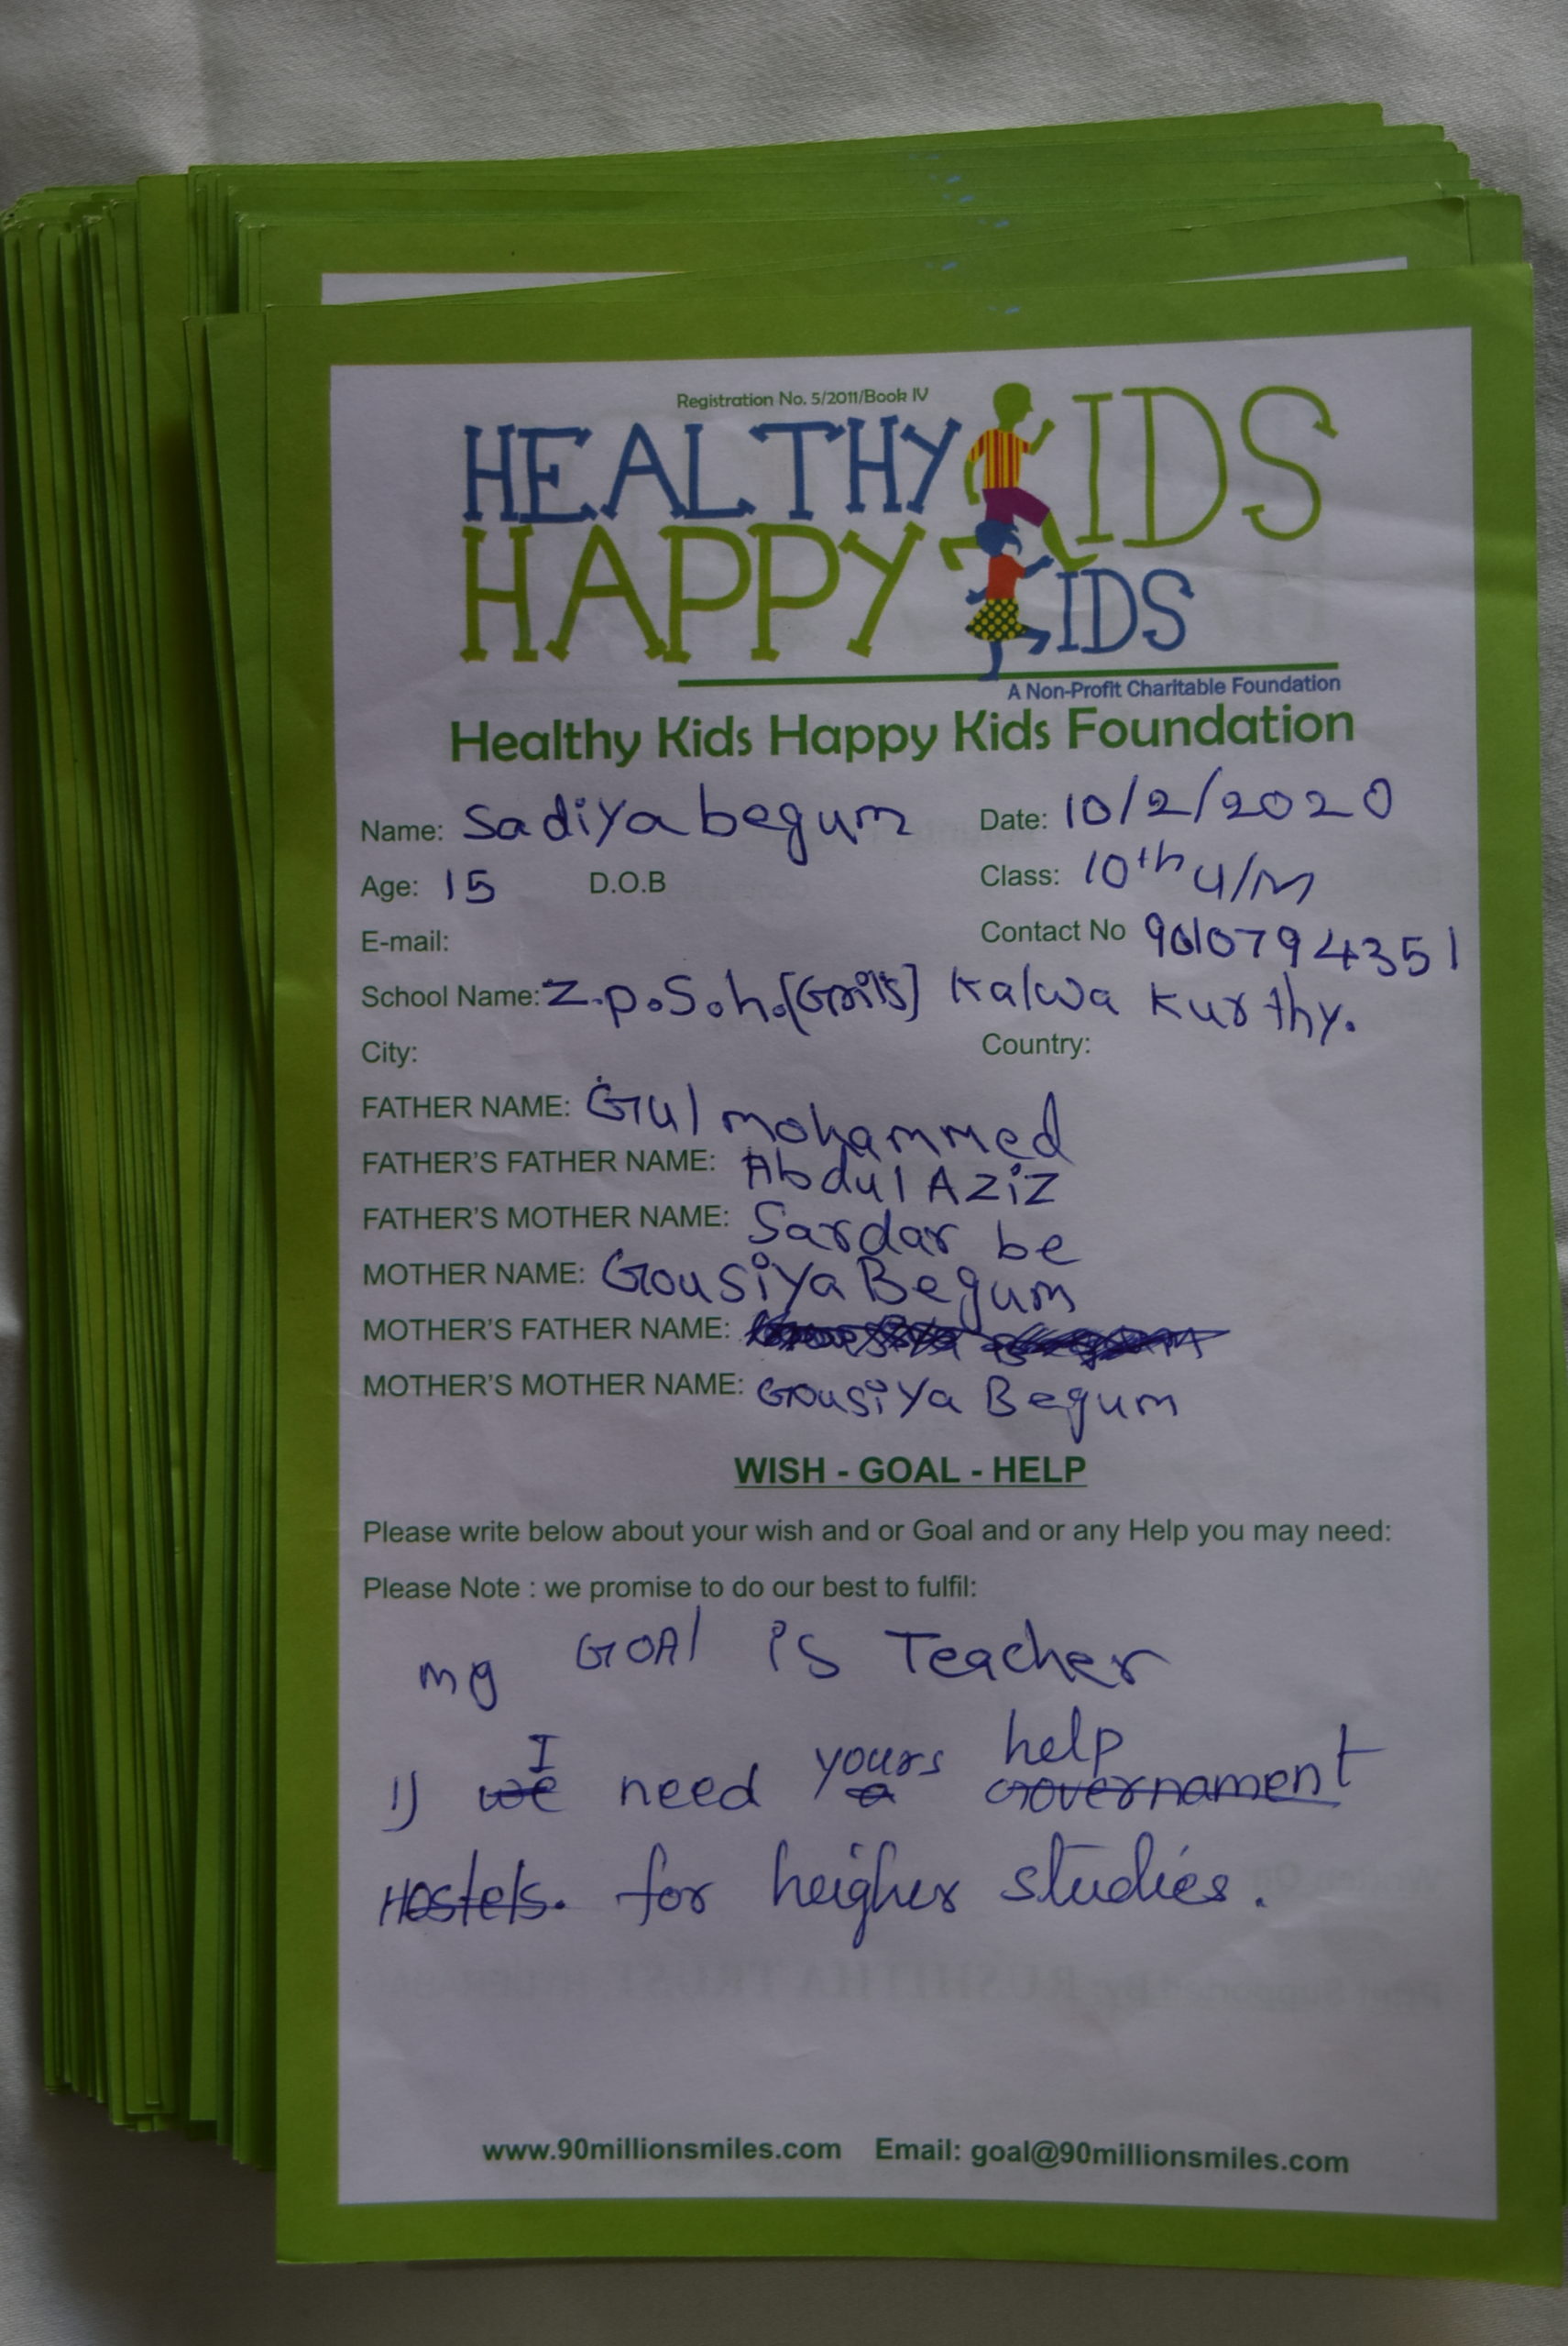 Registration No. 5/2011/Book IV
HEALTHY KIDS
HAPPY KIDS
A Non-Profit Charitable Foundation
Healthy Kids Happy Kids Foundation
Name: Sadiya begum Date: 10/2/2020
Age: 15 D.O.B Class: 10th U/M
E-mail: Contact No 9010794351
School Name: Z.p.S.h.[Grils] Kalwa Kurthy.
City: Country:
FATHER NAME: Gul mohammed
FATHER'S FATHER NAME: Abdul Aziz
FATHER'S MOTHER NAME: Sardar be
MOTHER NAME: Gousiya Begum
MOTHER'S FATHER NAME:
MOTHER'S MOTHER NAME: Gousiya Begum
WISH - GOAL - HELP
Please write below about your wish and or Goal and or any Help you may need:
Please Note : we promise to do our best to fulfil:
my GOAl is Teacher
I yours help
1) we need a Governament
Hostels. for heigher studies.
www.90millionsmiles.com Email: goal@90millionsmiles.com